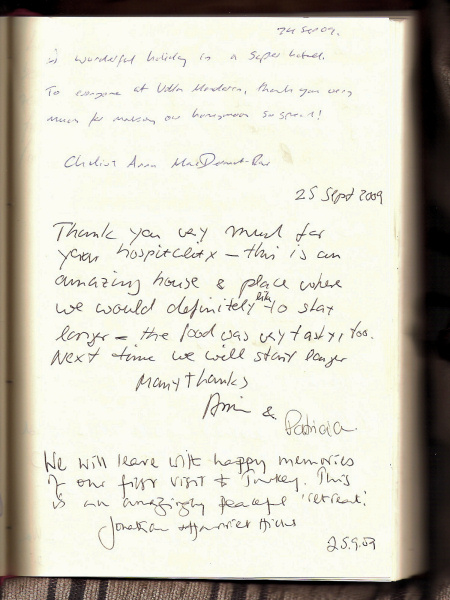 24 Sep 09.
A wonderful holiday in a super hotel.
To everyone at Villa Mandarin, thank you very
much for making our honeymoon so special!
Anna
25 Sept 2009
Thank you very much for
your hospitality – this is an
amazing house & place where
we would definitely like to stay
longer – the food was very tasty, too.
Next time we will stay longer
Many thanks
&
Patricia
We will leave with happy memories
of our first visit to Turkey. This
is an amazingly peaceful 'retreat'.
Jonathan & Harriet
25.9.09